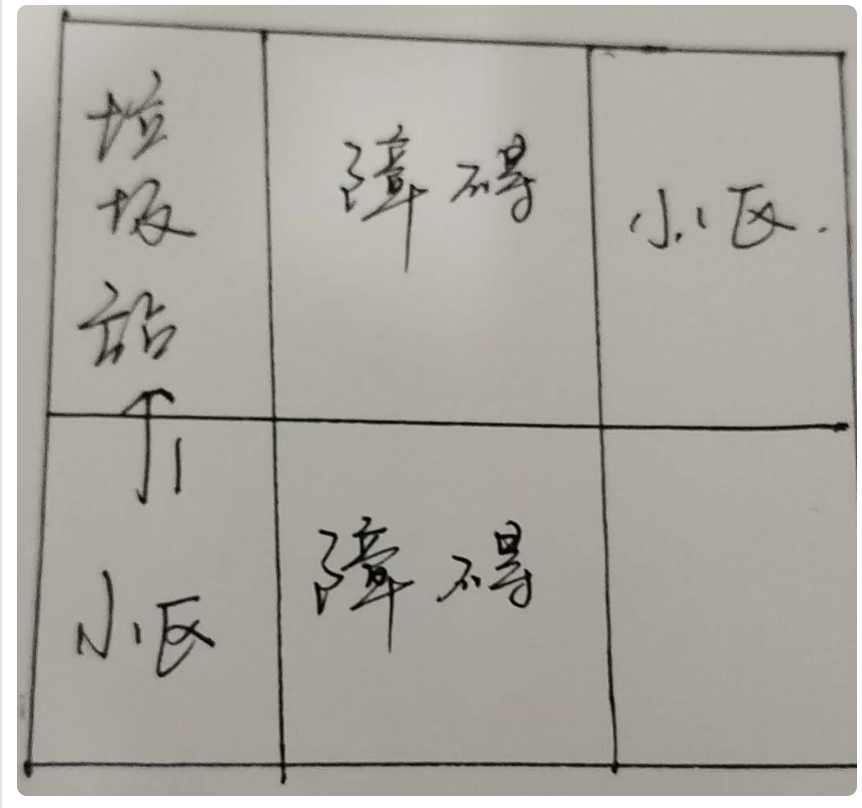 垃圾站
障碍
小区.
1
小区
障碍